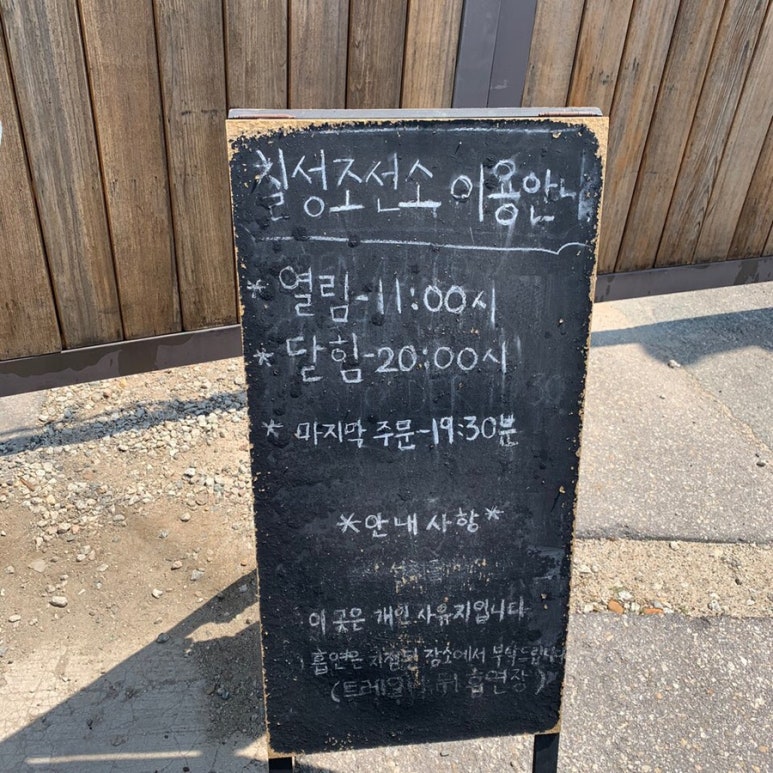 칠성조선소 이용안내
* 열림-11:00시
* 닫힘-20:00시
* 마지막 주문-19:30분
*안내사항*
이 곳은 개인 사유지입니다
흡연은 지정된 장소에서 부탁드립니다
(트레일러 뒤 흡연장)